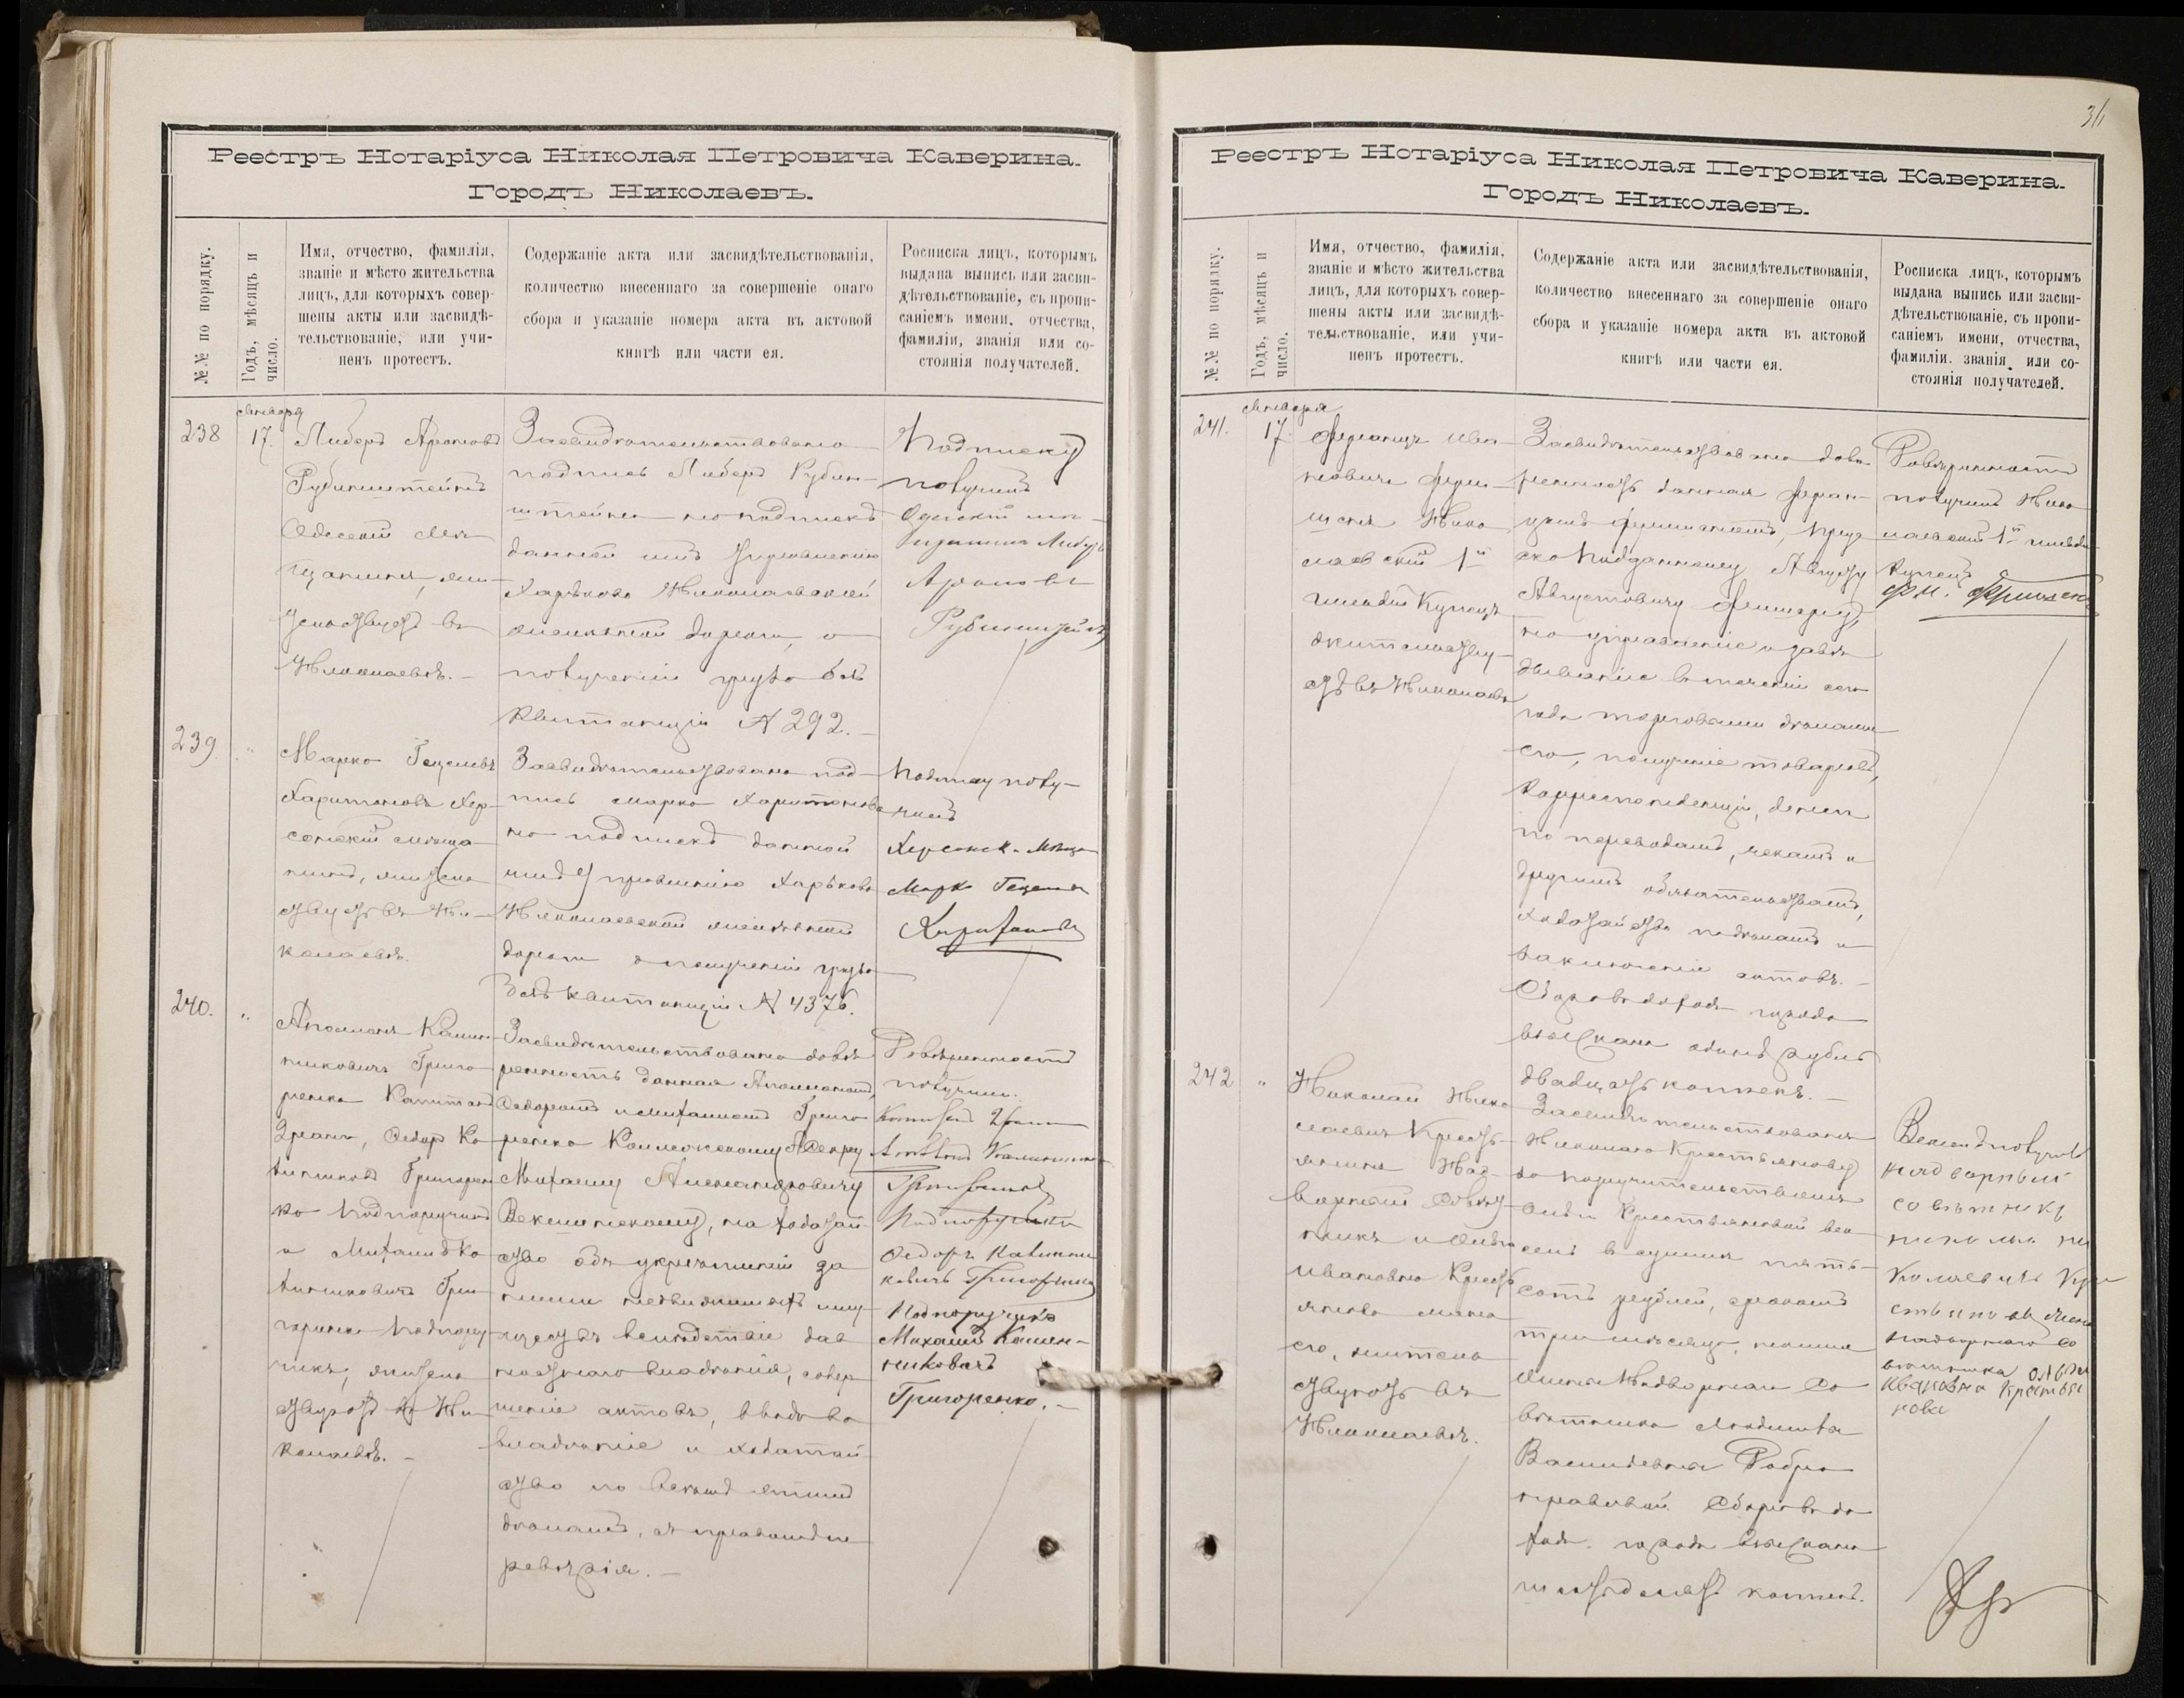 Реестръ Нотаріуса Николая Петровича Каверина.
Городъ Николаевъ.
№№ по порядку.
Годъ, мѣсяцъ и
число.
Имя, отчество, фамилія,
званіе и мѣсто жительства
лицъ, для которыхъ совер-
шены акты или засвидѣ-
тельствованіе, или учи-
ненъ протестъ.
Содержаніе акта или засвидѣтельствованія,
количество внесеннаго за совершеніе онаго
сбора и указаніе номера акта въ актовой
книгѣ или части ея.
Росписка лицъ, которымъ
выдана выпись или засви-
дѣтельствованіе, съ пропи-
саніемъ имени, отчества,
фамиліи, званія или со-
стоянія получателей.
238
Января
17.
Либеръ Ароновъ
Рубинштейнъ
Одесскій Мѣ-
щанинъ, жи-
тельствуетъ въ
Николаевѣ. —
Засвидѣтельствована
подпись Либера Рубин-
штейна на подпискѣ
данной имъ Управленію
Харьково Николаевской
желѣзной дороги, о
полученіи груза безъ
квитанціи № 292. —
Подписку
получилъ
Одесскій мѣ-
щанинъ Либеръ
Ароновъ
Рубинштейнъ
239
"
Марко Гецелевъ
Харитоновъ Хер-
сонскій мѣща-
нинъ, житель-
ствуетъ въ Ни-
колаевѣ.
Засвидѣтельствована под-
пись Марка Харитонова
на подпискѣ данной
имъ Управленію Харьково
Николаевской желѣзной
дороги о полученіи груза
безъ квитанціи № 4376.
Подписку полу-
чилъ
Херсонск. Мѣщ.
Марк Гецелев
Харитоновъ
240.
"
Аполлонъ Калин-
никовичъ Григо-
ренко Капитанъ
2 ранга, Федоръ Ка-
линниковъ Григорен-
ко Подпоручикъ
и Михаилъ Ка-
линниковичъ Гри-
горенко Подпору-
чикъ, житель-
ствуютъ въ Ни-
колаевѣ. —
Засвидѣтельствована довѣ-
ренность данная Аполлономъ,
Федоромъ и Михаиломъ Григо-
ренко Коллежскому Секрет.
Михаилу Александровичу
на ходатай-
ство объ укрѣпленіи за
ними недвижимыхъ иму-
ществъ вслѣдствіе дав-
ностнаго владѣнія, совер-
шеніе актовъ, вводъ во
владѣніе и ходатай-
ство по всѣмъ этимъ
дѣламъ, съ правомъ пе-
редовѣрія. —
Довѣренность
получили.
Капитанъ 2 ранга
Аполлонъ Калинников
Григоренко
Подпоручикъ
Федоръ Калинни-
ковичъ Григоренко
Подпоручикъ
Михаилъ Калин-
никовичъ
Григоренко. —
36
Реестръ Нотаріуса Николая Петровича Каверина.
Городъ Николаевъ.
№№ по порядку.
Годъ, мѣсяцъ и
число.
Имя, отчество, фамилія,
званіе и мѣсто жительства
лицъ, для которыхъ совер-
шены акты или засвидѣ-
тельствованіе, или учи-
ненъ протестъ.
Содержаніе акта или засвидѣтельствованія,
количество внесеннаго за совершеніе онаго
сбора и указаніе номера акта въ актовой
книгѣ или части ея.
Росписка лицъ, которымъ
выдана выпись или засви-
дѣтельствованіе, съ пропи-
саніемъ имени, отчества,
фамиліи, званія или со-
стоянія получателей.
241.
Января
17.
Францъ Ива-
новичъ
Нико-
лаевскій 1й
гильдіи Купецъ
жительству-
етъ въ Николаевѣ
Засвидѣтельствована довѣ-
ренность данная Фран-
цомъ
Подданному Августу
Августовичу
на управленіе и завѣ-
дываніе въ теченіи сего
года торговыми дѣлами
его, полученіе товаровъ,
корреспонденціи, денегъ
по переводамъ, чекамъ и
другимъ обязательствамъ,
ходатайства по дѣламъ и
заключеніе актовъ. —
Сборъ въ доходъ города
взысканъ одинъ рубль
двадцать копѣекъ. —
Довѣренность
получилъ Нико-
лаевскій 1й гильдіи
Купецъ
242
"
Николай Нико-
лаевичъ Кресть-
яновъ Над-
ворный Совѣт-
никъ и Ольга
Ивановна Кресть-
янова жена
его, житель-
ствуютъ въ
Николаевѣ.
Засвидѣтельствованъ
Николаю Крестьянову
за поручительствомъ
Ольги Крестьяновой век-
сель въ суммѣ пять-
сотъ рублей, срокомъ
три мѣсяца, на имя
жены Надворнаго Со-
вѣтника Людмилы
Васильевны Добро-
нравовой. Сборъ въ до-
ходъ города взысканъ
шестьдесятъ копѣекъ.
Вексель получилъ
надворный
совѣтникъ
николай ни
колаевичъ Кре
стьяновъ, жена
надворнаго со
вѣтника Ольга
Ивановна Крестья
нова